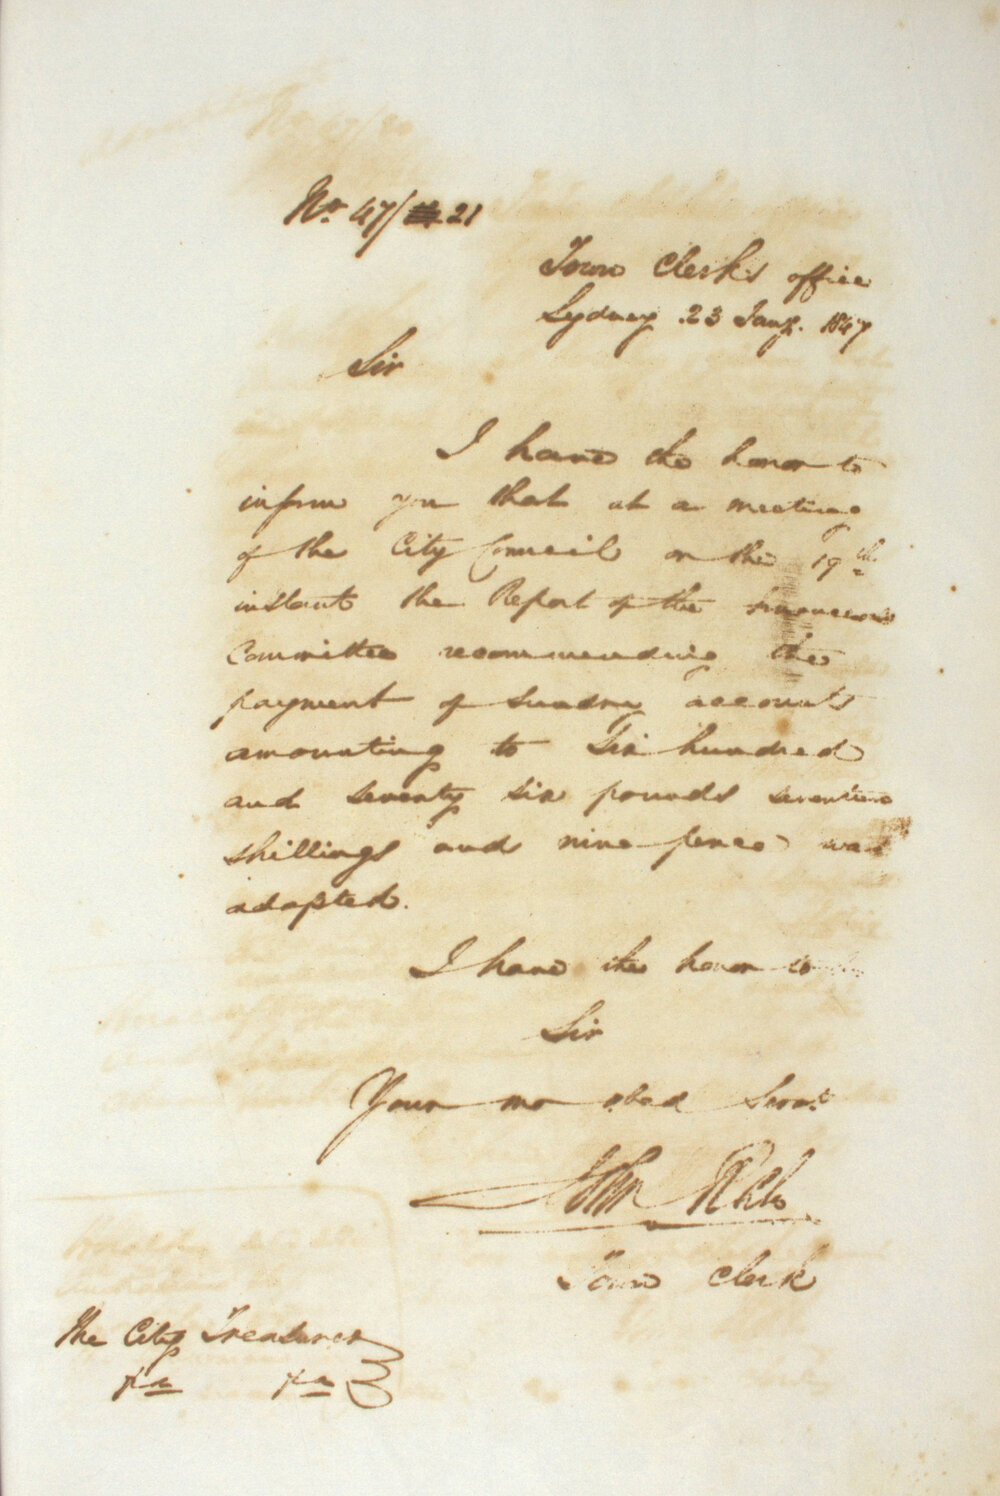 No. 47/21
Town Clerks office
Sydney 23 Jany. 1847
Sir
I have the honor to
inform you that at a meeting
of the City Council on the 19th
instant the Report of the
Committee recommending the
payment of sundry accounts
amounting to Six hundred
and seventy six pounds seventeen
shillings and nine pence was
adopted.
I have the honor to be
Sir
Your mo obed Servt
John Rich
Town Clerk
The City Treasurer